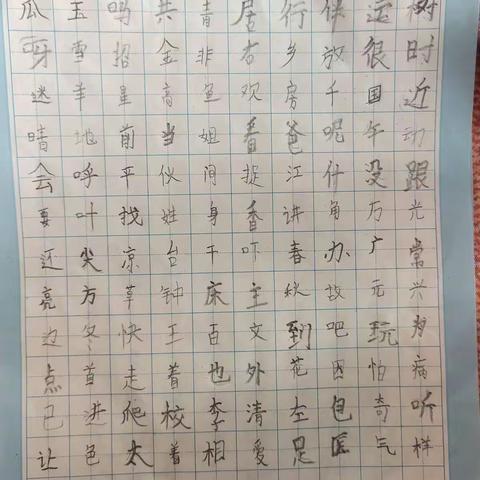 瓜玉吗共青居行伴运树
呀雪招金非右乡放很时
迷羊星高鱼欢房千国近
晴地前当姐看爸呢午动
会呼平伙间捉江什没跟
要叶找姓身香讲角万光
还尖凉台干叮春办广常
亮方草钟床主秋故元兴
边冬快王百文到吧玩为
点首走着也外花因怕病
已进爬校李清左包奇听
让色太着相爱足医气样